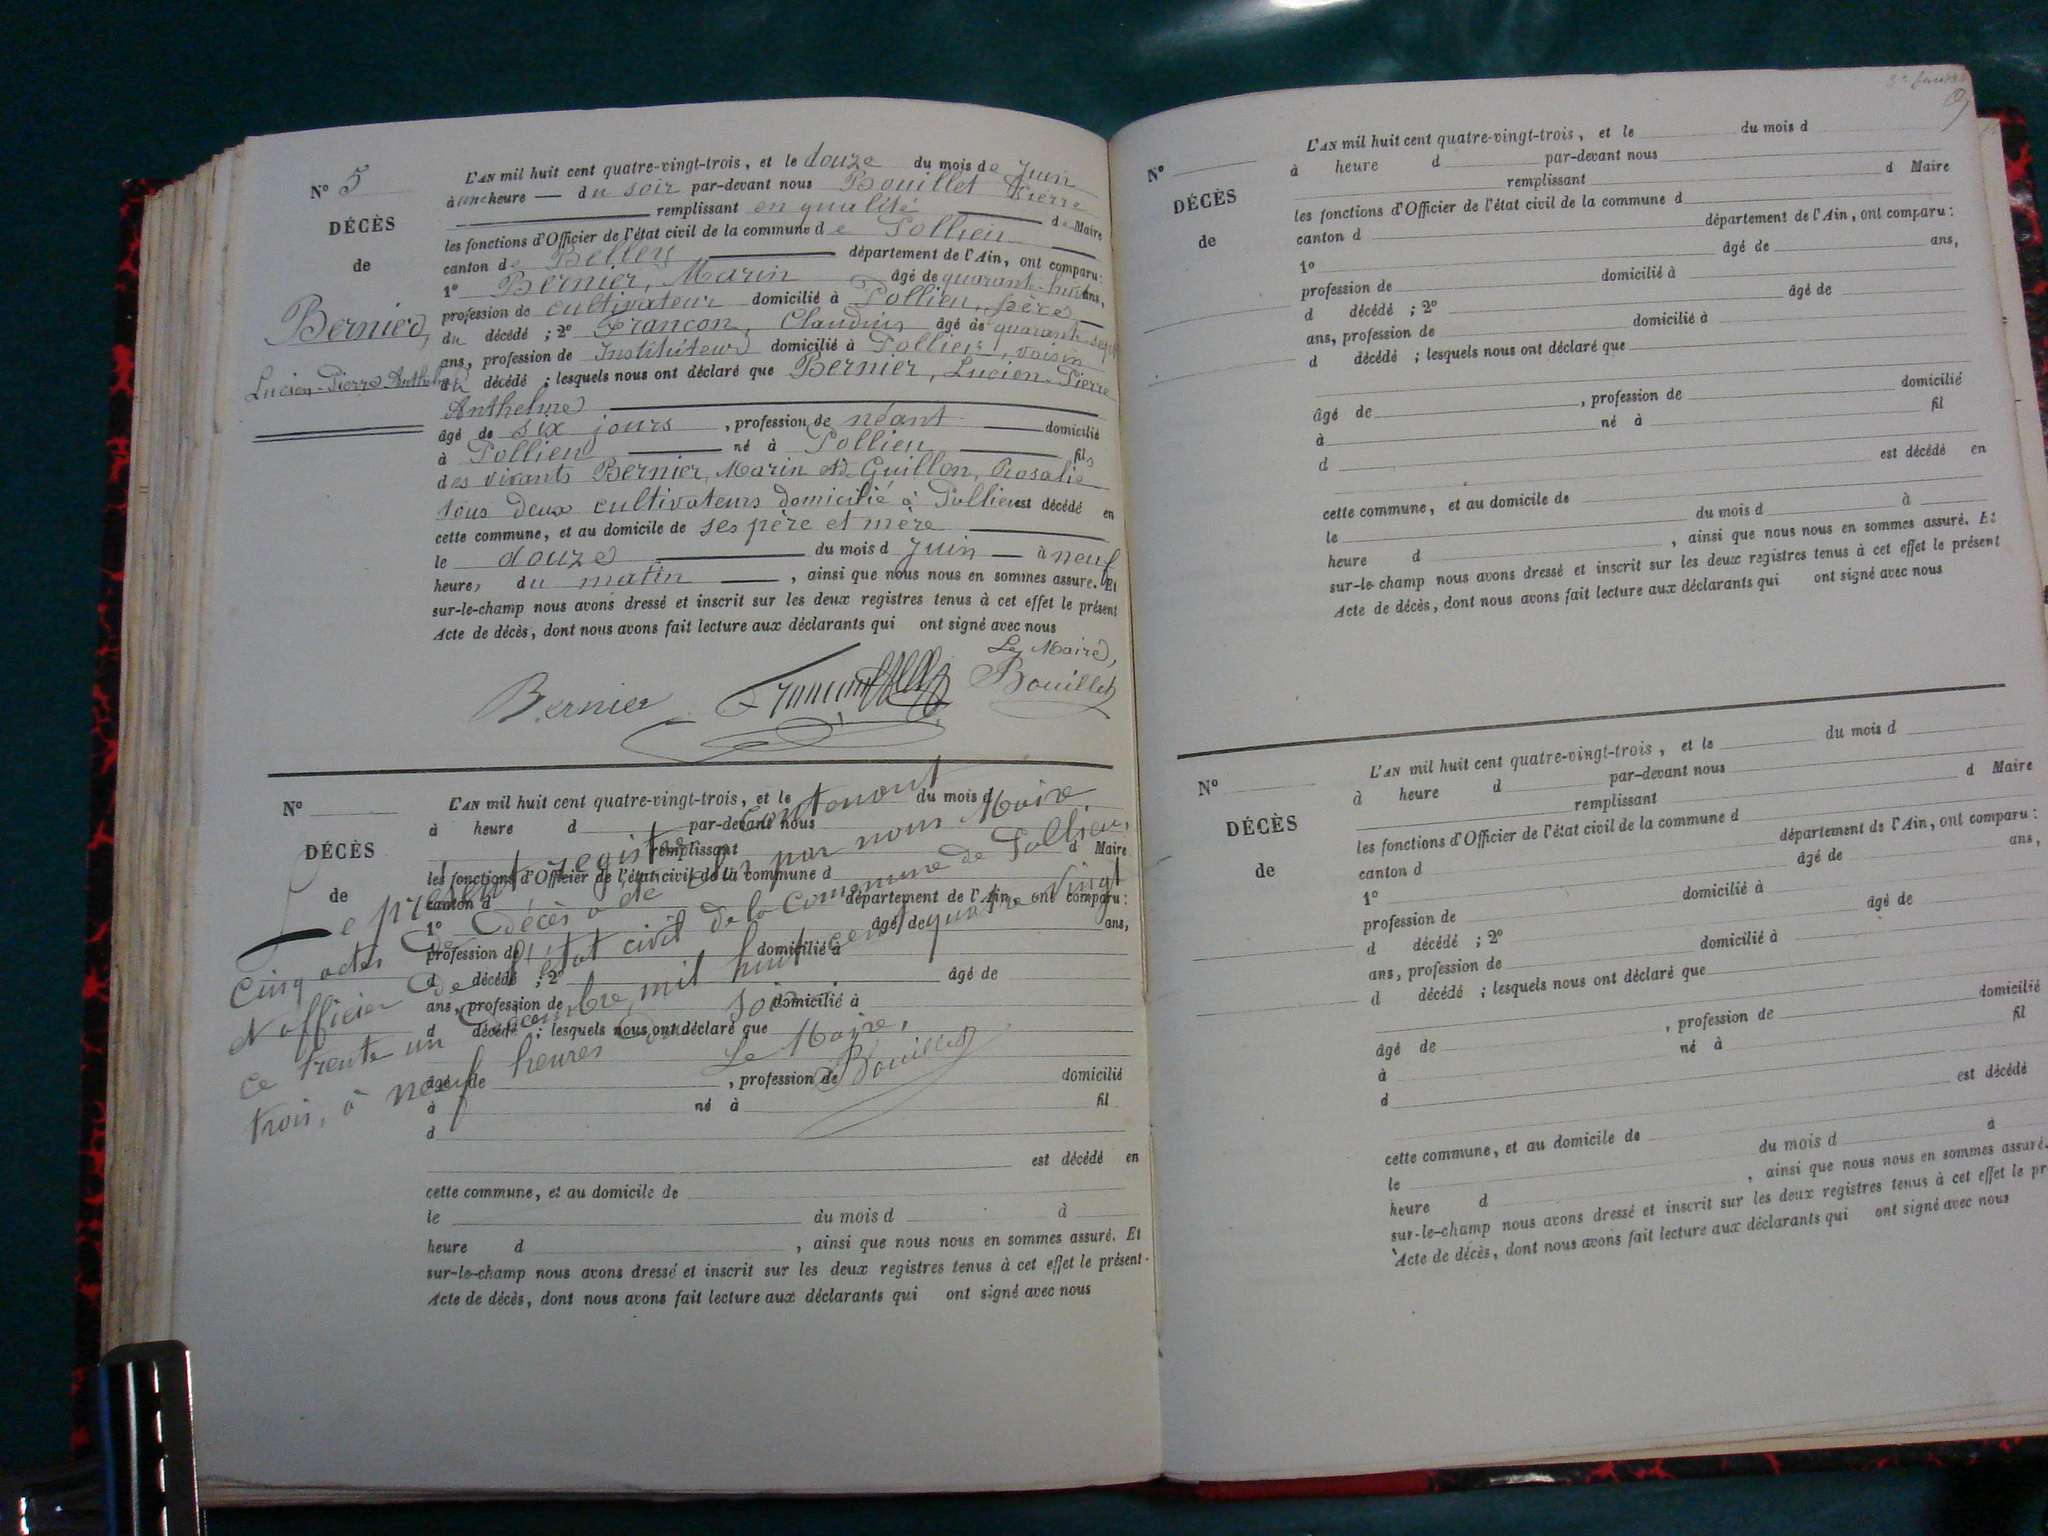 N° 5
DÉCÈS
de
Bernier,
Lucien-Pierre Anthelme
L'AN mil huit cent quatre-vingt-trois, et le douze du mois de Juin
à une heure — du soir par-devant nous Bouillet Pierre
remplissant en qualité de Maire
les fonctions d'Officier de l'état civil de la commune de Pollieu
canton de Belley département de l'Ain, ont comparu:
1° Bernier, Marin âgé de quarante-huit ans,
profession de cultivateur domicilié à Pollieu, père
du décédé ; 2° Francon, Claudius âgé de quarante-sept
ans, profession de Instituteur domicilié à Pollieu, voisin
d décédé ; lesquels nous ont déclaré que Bernier, Lucien-Pierre
Anthelme
âgé de six jours , profession de néant domicilié
à Pollieu né à Pollieu fils
des vivants Bernier, Marin et Guillon, Rosalie
tous deux cultivateurs domicilié à Pollieu est décédé en
cette commune, et au domicile de ses père et mère
le douze du mois d Juin — à neuf
heures du matin , ainsi que nous nous en sommes assuré. Et
sur-le-champ nous avons dressé et inscrit sur les deux registres tenus à cet effet le présent
Acte de décès, dont nous avons fait lecture aux déclarants qui ont signé avec nous
Le Maire,
Bernier Francon Bouillet
N°
DÉCÈS
de
L'AN mil huit cent quatre-vingt-trois, et le du mois d
à heure d par-devant nous
remplissant d Maire
les fonctions d'Officier de l'état civil de la commune d
canton d département de l'Ain, ont comparu:
1° âgé de ans,
profession de domicilié à
d décédé ; 2° âgé de
ans, profession de domicilié à
d décédé ; lesquels nous ont déclaré que
âgé de , profession de domicilié
à né à fil
d
est décédé en
cette commune, et au domicile de
le du mois d à
heure d , ainsi que nous nous en sommes assuré. Et
sur-le-champ nous avons dressé et inscrit sur les deux registres tenus à cet effet le présent
Acte de décès, dont nous avons fait lecture aux déclarants qui ont signé avec nous
Le présent registre contenant
cinq actes de décès a été clos par nous Maire
et officier de l'état civil de la commune de Pollieu,
ce trente un décembre mil huit cent quatre vingt
trois, à neuf heures du soir.
Le Maire,
Bouillet
N°
DÉCÈS
de
L'AN mil huit cent quatre-vingt-trois, et le du mois d
à heure d par-devant nous
remplissant d Maire
les fonctions d'Officier de l'état civil de la commune d
canton d département de l'Ain, ont comparu:
1° âgé de ans,
profession de domicilié à
d décédé ; 2° âgé de
ans, profession de domicilié à
d décédé ; lesquels nous ont déclaré que
âgé de , profession de domicilié
à né à fil
d
est décédé en
cette commune, et au domicile de
le du mois d à
heure d , ainsi que nous nous en sommes assuré. Et
sur-le-champ nous avons dressé et inscrit sur les deux registres tenus à cet effet le présent
Acte de décès, dont nous avons fait lecture aux déclarants qui ont signé avec nous
N°
DÉCÈS
de
L'AN mil huit cent quatre-vingt-trois, et le du mois d
à heure d par-devant nous
remplissant d Maire
les fonctions d'Officier de l'état civil de la commune d
canton d département de l'Ain, ont comparu:
1° âgé de ans,
profession de domicilié à
d décédé ; 2° âgé de
ans, profession de domicilié à
d décédé ; lesquels nous ont déclaré que
âgé de , profession de domicilié
à né à fil
d
est décédé
cette commune, et au domicile de
le du mois d à
heure d , ainsi que nous nous en sommes assuré.
sur-le-champ nous avons dressé et inscrit sur les deux registres tenus à cet effet le pr
Acte de décès, dont nous avons fait lecture aux déclarants qui ont signé avec nous